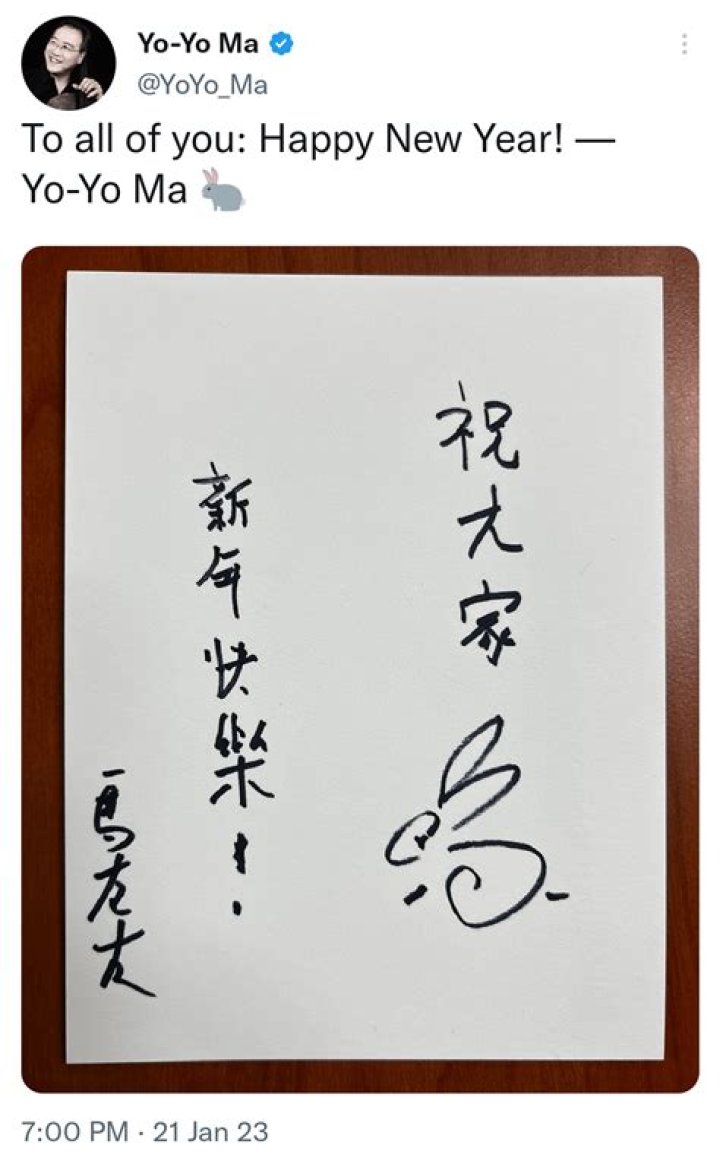 Yo-Yo Ma
@YoYo_Ma
To all of you: Happy New Year! —
Yo-Yo Ma
祝大家
新年快樂!
馬友友
7:00 PM · 21 Jan 23